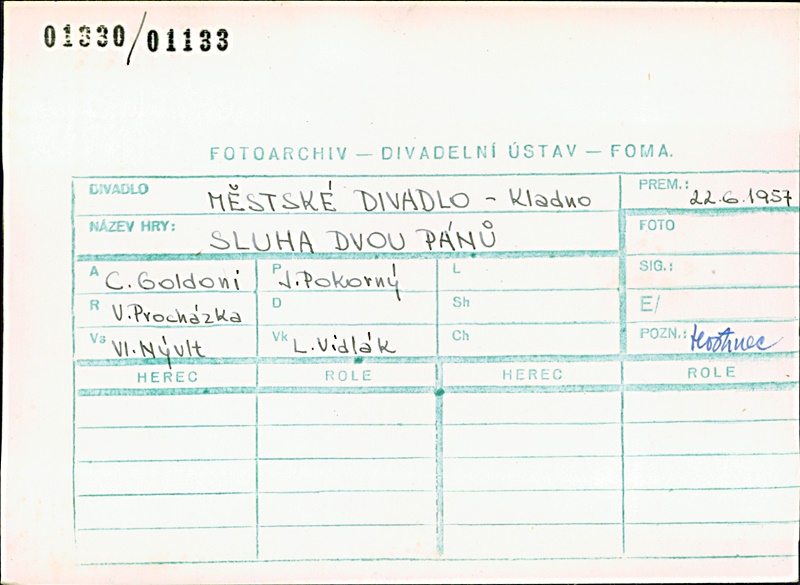 01330/01133
FOTOARCHIV — DIVADELNÍ ÚSTAV — FOMA.
DIVADLO MĚSTSKÉ DIVADLO - Kladno PREM.: 22.6.1957
NÁZEV HRY: SLUHA DVOU PÁNŮ FOTO
A C. Goldoni P J. Pokorný L SIG.:
R V. Procházka D Sh E/
Vs Vl. Nývlt Vk L. Vidlák Ch POZN.:
HEREC ROLE HEREC ROLE